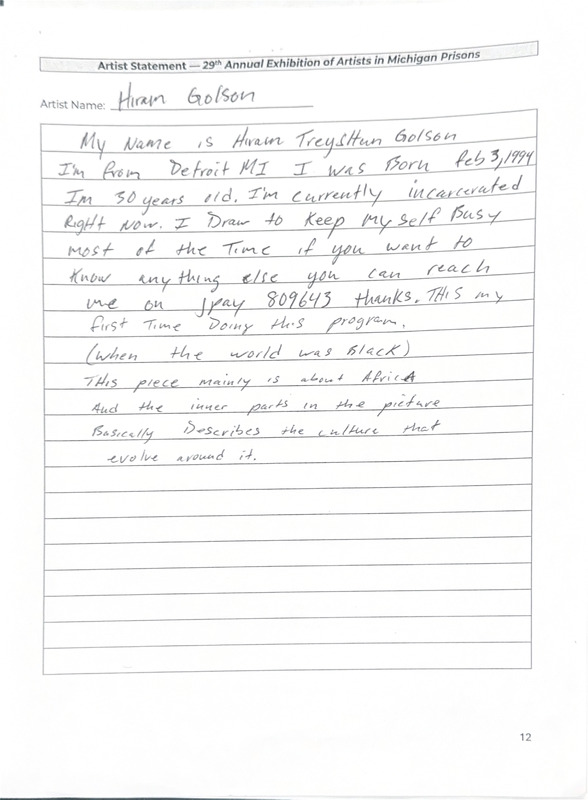 Artist Statement — 29th Annual Exhibition of Artists in Michigan Prisons
Artist Name: Hiram Golson
My Name is Hiram TreyShun Golson
I'm from Detroit MI I was Born Feb 3, 1994
Im 30 years old. I'm currently incarcerated
Right Now. I Draw to Keep My self Busy
most of the Time if you want to
Know any thing else you can reach
me on Jpay 809643 thanks. THIS my
first Time Doing this program.
(when the world was Black)
THis piece mainly is about AfricA
And the inner parts in the picture
Basically Describes the culture that
evolve around it.
12